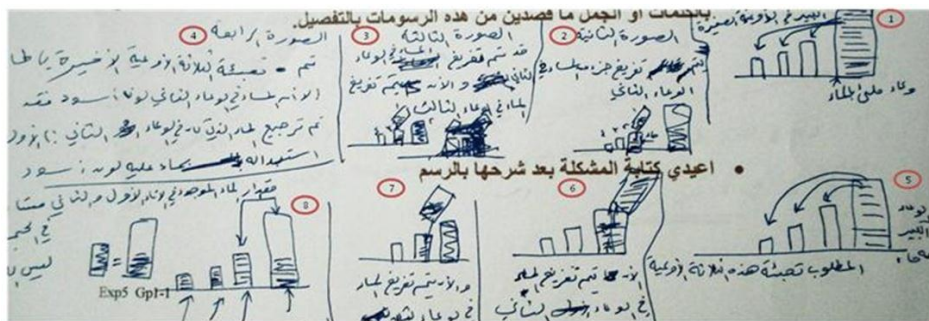 بالكلمات او الجمل ما قصدين من هذه الرسومات بالتفصيل.
1
وعاء مليء بالماء
2
الصورة الثانية
يتم تفريغ جزء من الماء في
الوعاء الثاني
3
الصورة الثالثة
قد تم تفريغ الماء في الوعاء
الثاني والآن يتم تفريغ
الماء في الوعاء الثالث
4
الصورة الرابعة
تم تعبئة الثلاثة الأوعية الأخيرة بالماء
الآن الماء في الوعاء الثاني لونه أسود فقد
تم ترجيع الماء الذي كان في الوعاء الثاني بالأول
استبداله بماء عليه لون أسود
اعيدي كتابة المشكلة بعد شرحها بالرسم
5
الوعاء
الكبير
المطلوب تعبئة هذه الثلاثة الأوعية
6
الآن يتم تفريغ الماء
في الوعاء الثاني
7
والآن يتم تفريغ الماء
في الوعاء
8
مقدار الماء الموجود في الإناء الأول والثاني
في الحجم
ليس
Exp5 Gp1-1